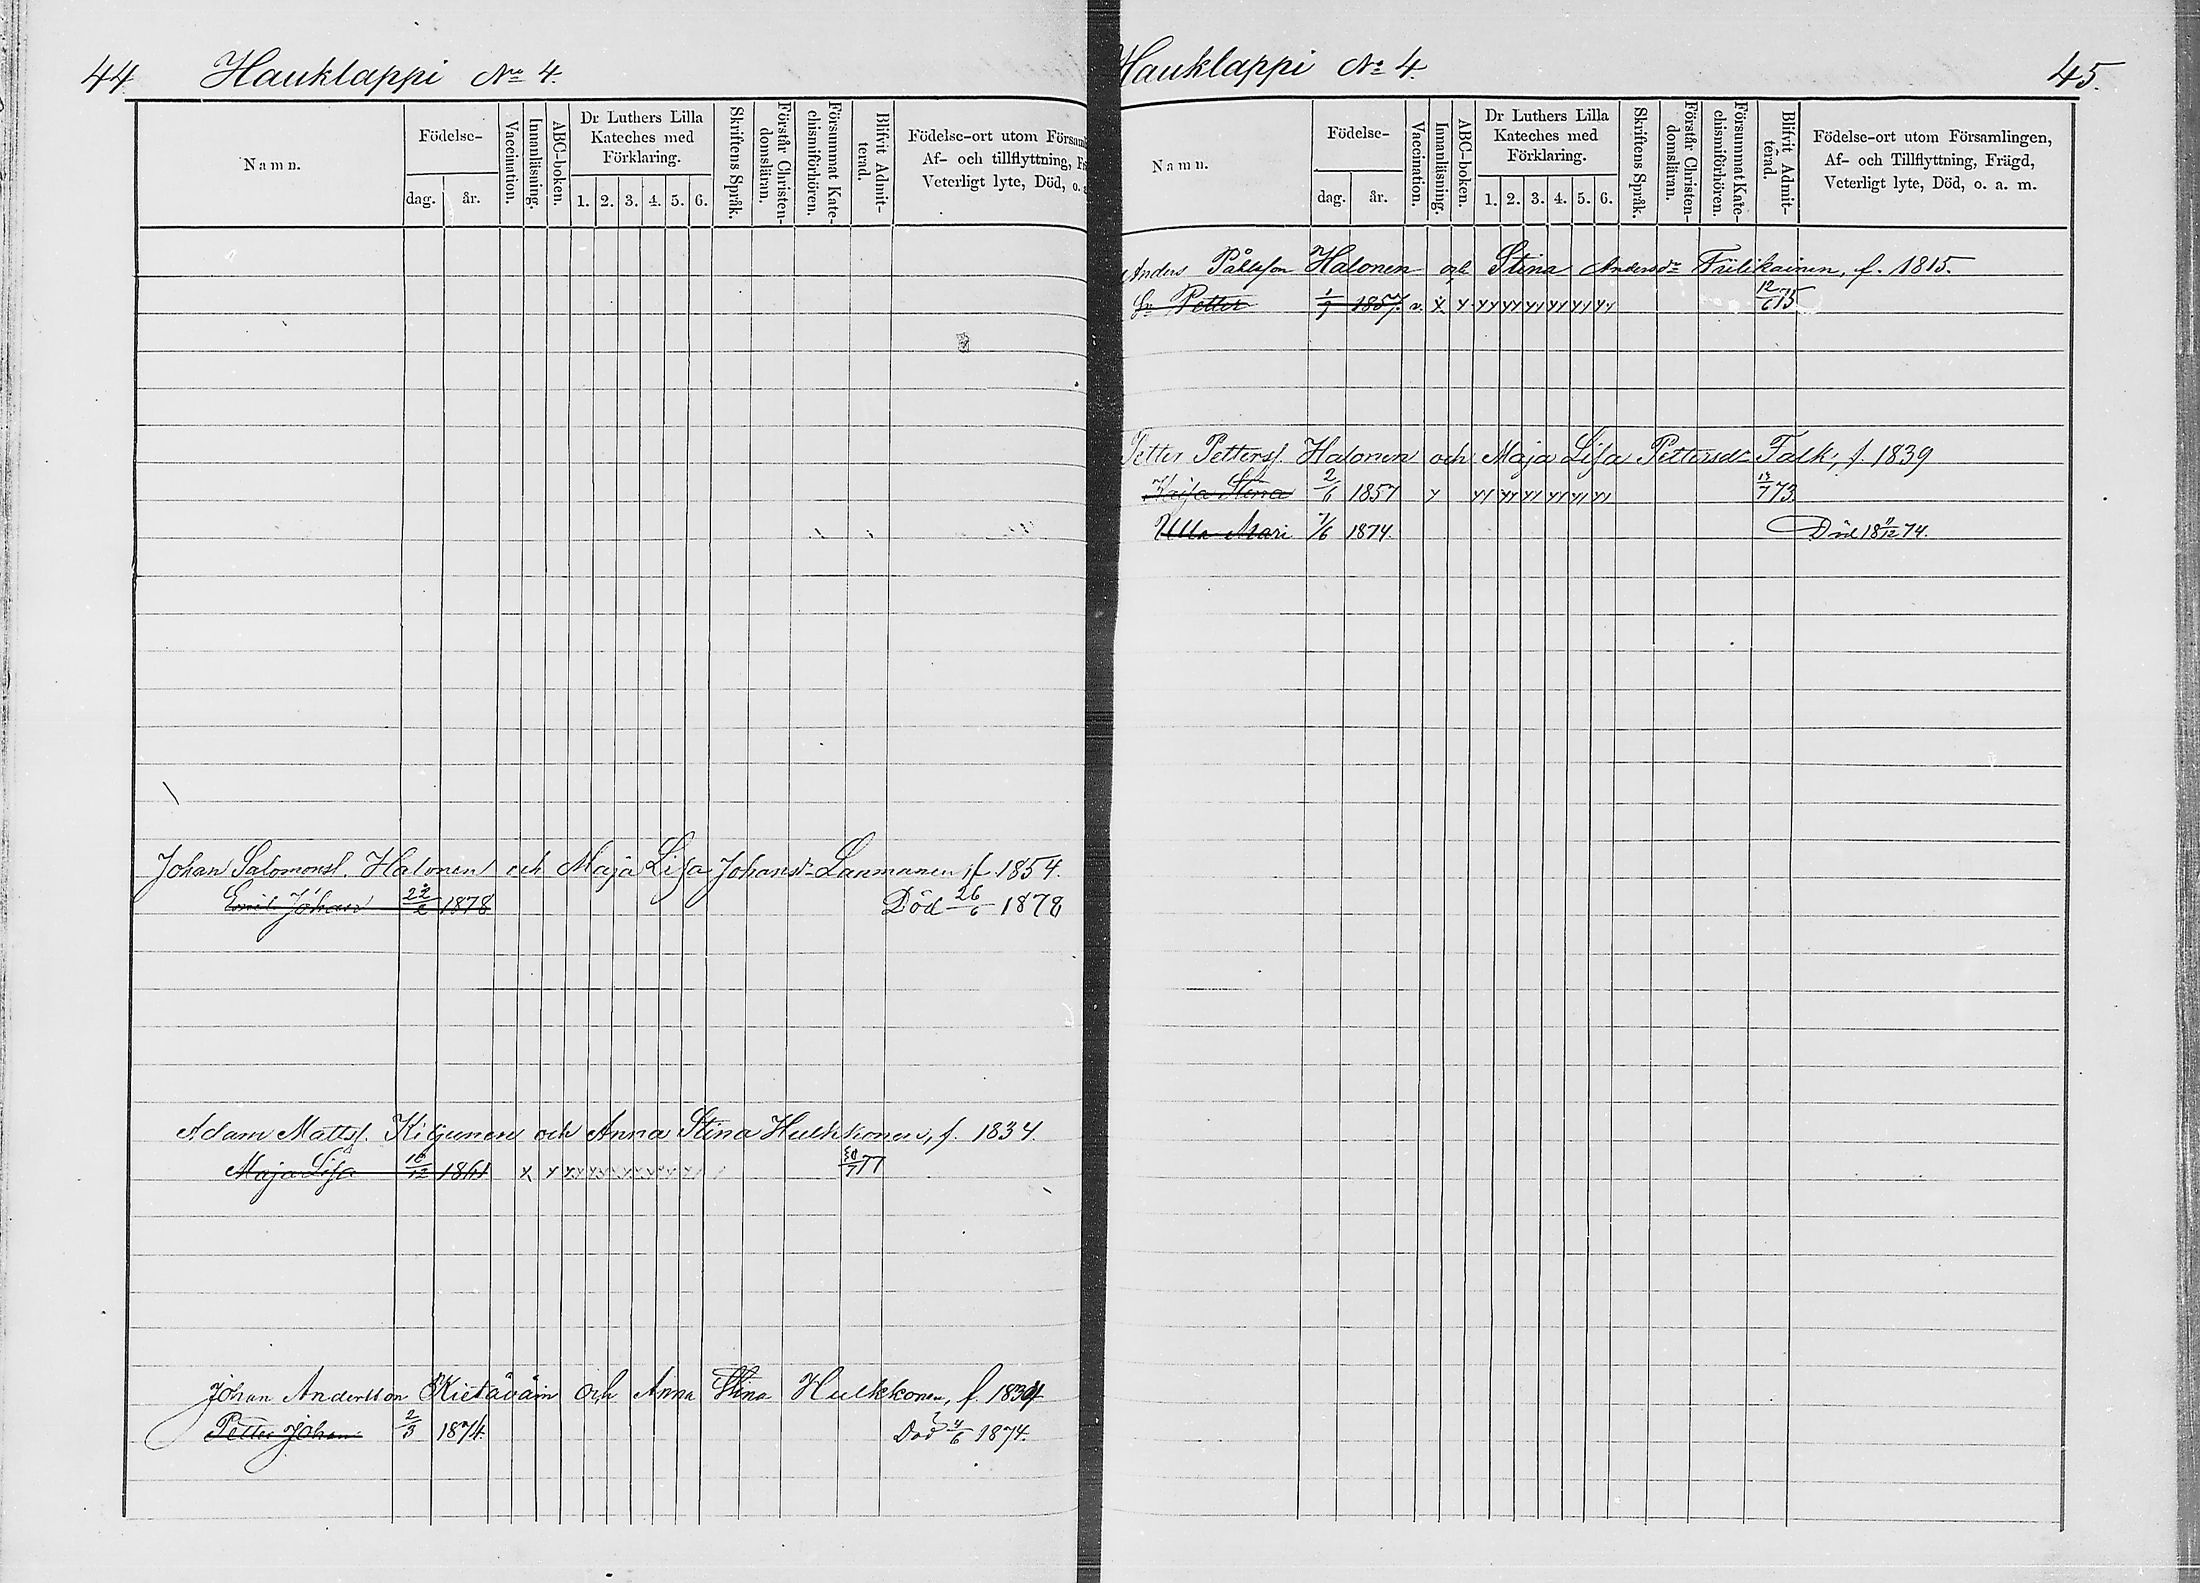 44. Hauklappi № 4.
Namn.
Födelse-
dag. år.
Vaccination.
Innanläsning.
ABC-boken.
Dr Luthers Lilla
Kateches med
Förklaring.
1. 2. 3. 4. 5. 6.
Skriftens Språk.
Förstår Christen-
domsläran.
Försummat Kate-
chismiförhören.
Blifvit Admit-
terad.
Födelse-ort utom Försam
Af- och tillflyttning,
Veterligt lyte, Död, o.
Johan Salomonss. Halonen och Maja Lisa Johansdr Lanmanen, f. 1854.
Emil Johan 1878 Död 26/6 1878
Adam Mattss. Kiljunen och Anna Stina Hulkkonen, f. 1834.
Maja Lisa 16/12 1861 x y yy yy yy yy yy yy 77
Johan Andersson Kietäväin och Anna Stina Hulkkonen, f. 1834
Petter Johan 2/3 1874. Död 4/6 1874.
Hauklappi № 4 45.
Namn.
Födelse-
dag. år.
Vaccination.
Innanläsning.
ABC-boken.
Dr Luthers Lilla
Kateches med
Förklaring.
1. 2. 3. 4. 5. 6.
Skriftens Språk.
Förstår Christen-
domsläran.
Försummat Kate-
chismiförhören.
Blifvit Admit-
terad.
Födelse-ort utom Församlingen,
Af- och Tillflyttning, Frägd,
Veterligt lyte, Död, o. a. m.
Anders Pålsson Halonen och Stina Andersdr Fülikainen, f. 1815.
Sn Petter 1/7 1857. v. x y yy yy yy yy yy yy 12/6 75
Petter Petterss. Halonen och Maja Lisa Pettersdr Falk, f. 1839
Kaisa Stina 2/6 1857 y yy yy yy yy yy yy 73
Ulla Mari 7/6 1874. Död 18 11/12 74.